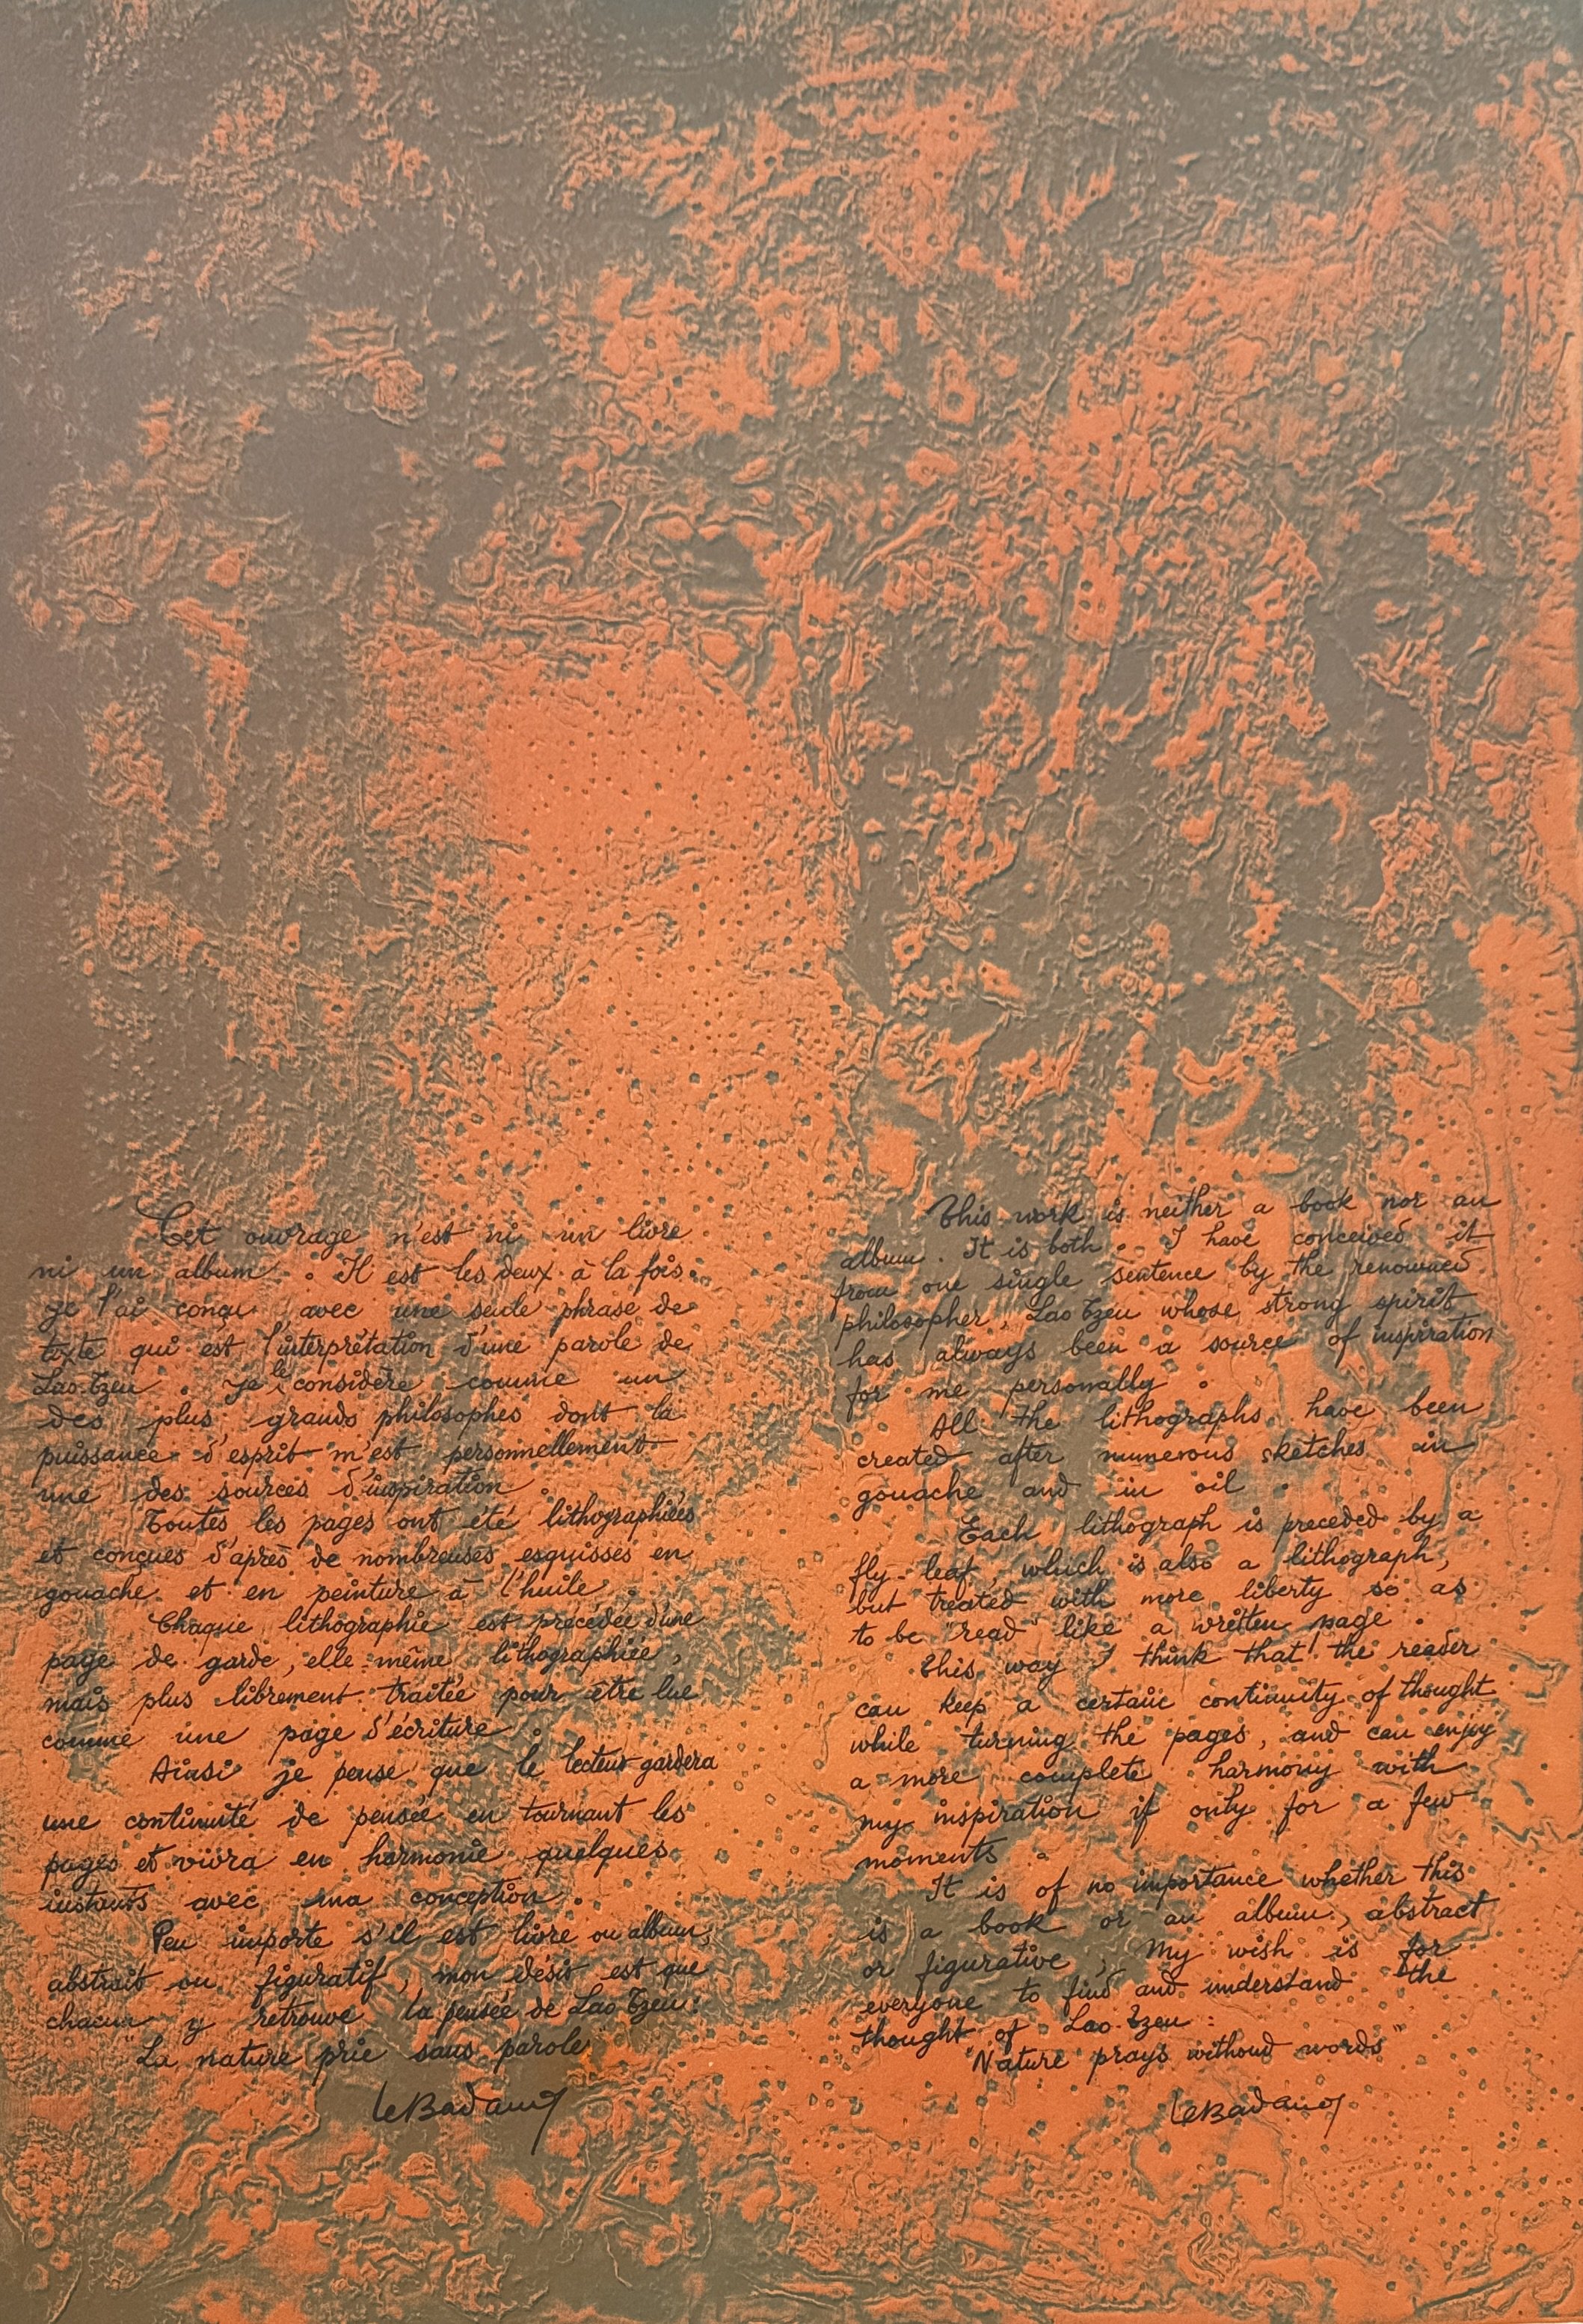 Cet ouvrage n'est ni un livre
ni un album. Il est les deux à la fois.
Je l'ai conçu avec une seule phrase de
texte qui est l'interprétation d'une parole de
Lao.Tzeu. Je le considère comme un
des plus grands philosophes dont la
puissance d'esprit m'est personnellement
une des sources d'inspiration.
Toutes les pages ont été lithographiées
et conçues d'après de nombreuses esquisses en
gouache et en peinture à l'huile.
Chaque lithographie est précédée d'une
page de garde, elle-même lithographiée,
mais plus librement traitée pour être lue
comme une page d'écriture.
Ainsi je pense que le lecteur gardera
une continuité de pensée en tournant les
pages et vivra en harmonie quelques
instants avec ma conception.
Peu importe s'il est livre ou album,
abstrait ou figuratif, mon désir est que
chacun y retrouve la pensée de Lao Tzeu:
"La nature prie sans parole"
LeBadang
This work is neither a book nor an
album. It is both. I have conceived it
from one single sentence by the renowned
philosopher, Lao Tzeu whose strong spirit
has always been a source of inspiration
for me personally.
All the lithographs have been
created after numerous sketches in
gouache and in oil.
Each lithograph is preceded by a
fly-leaf, which is also a lithograph,
but treated with more liberty so as
to be "read" like a written page.
This way I think that the reader
can keep a certain continuity of thought
while turning the pages, and can enjoy
a more complete harmony with
my inspiration if only for a few
moments.
It is of no importance whether this
is a book or an album, abstract
or figurative; My wish is for
everyone to find and understand the
thought of Lao.Tzeu:
"Nature prays without words"
LeBadang